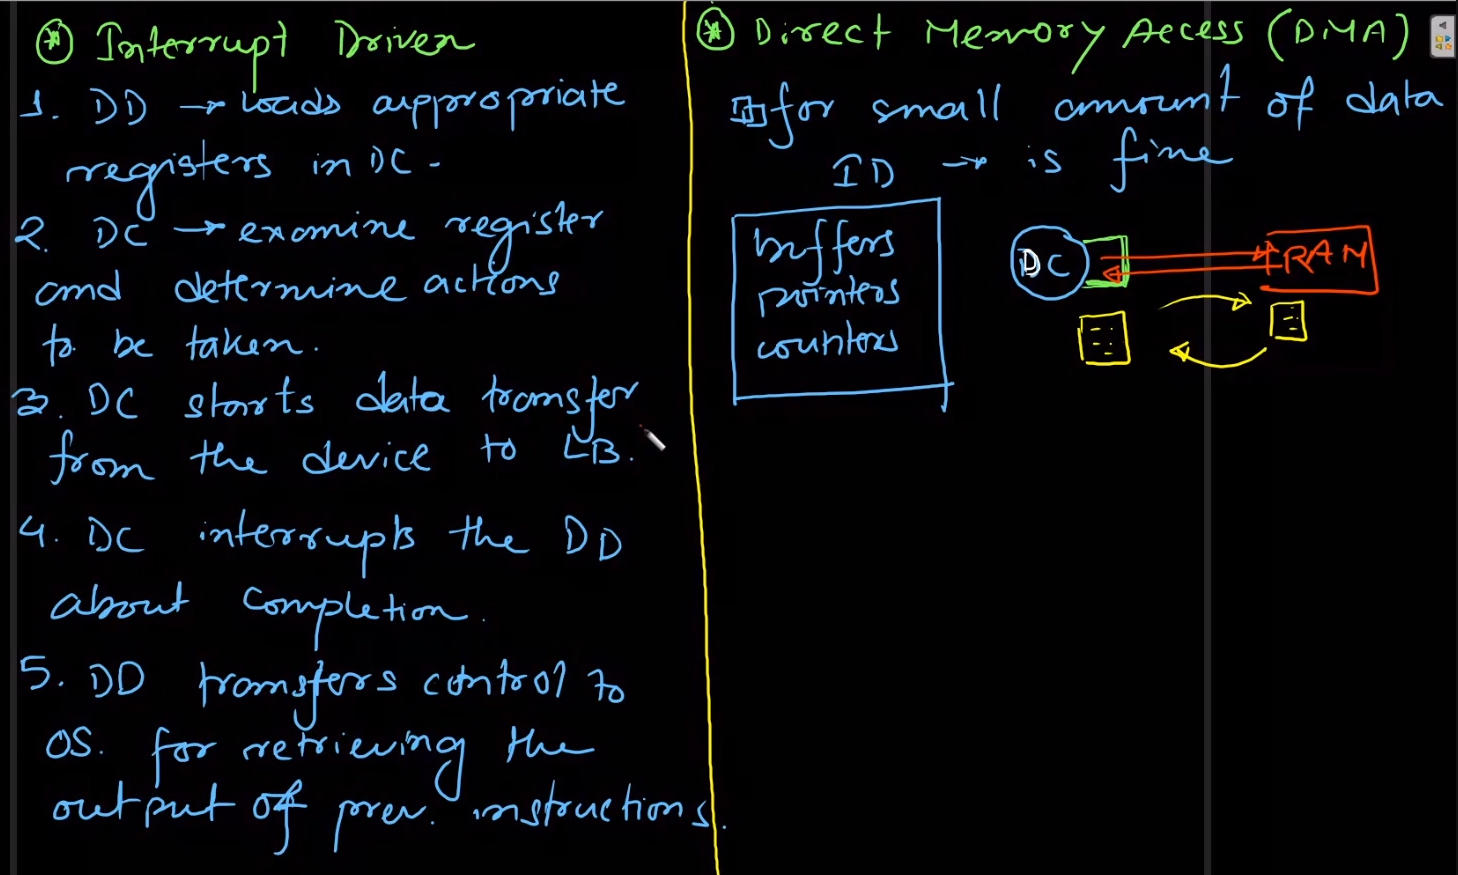 Interrupt Driven
1. DD → loads appropriate
registers in DC -
2. DC → examine register
and determine actions
to be taken.
3. DC starts data transfer
from the device to LB.
4. DC interrupts the DD
about completion.
5. DD transfers control to
OS. for retrieving the
output of prev. instructions.
Direct Memory Access (DMA)
for small amount of data
ID → is fine
buffers
pointers
counters
DC
RAM